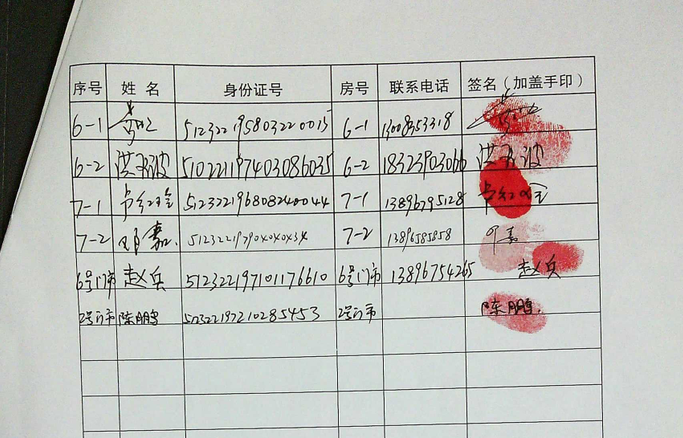 序号 姓名 身份证号 房号 联系电话 签名（加盖手印）
6-1 512322195803220015 6-1 13008353318
6-2 洪 波 510221197403086035 6-2 18323903066 洪 波
7-1 512322196808240044 7-1 13896795128
7-2 嘉 512322197904040434 7-2 13896585858 嘉
6号门市 赵兵 512322197101176610 6号门市 13896754265 赵兵
2号门市 陈鹏 512322197210285453 2号门市 陈鹏